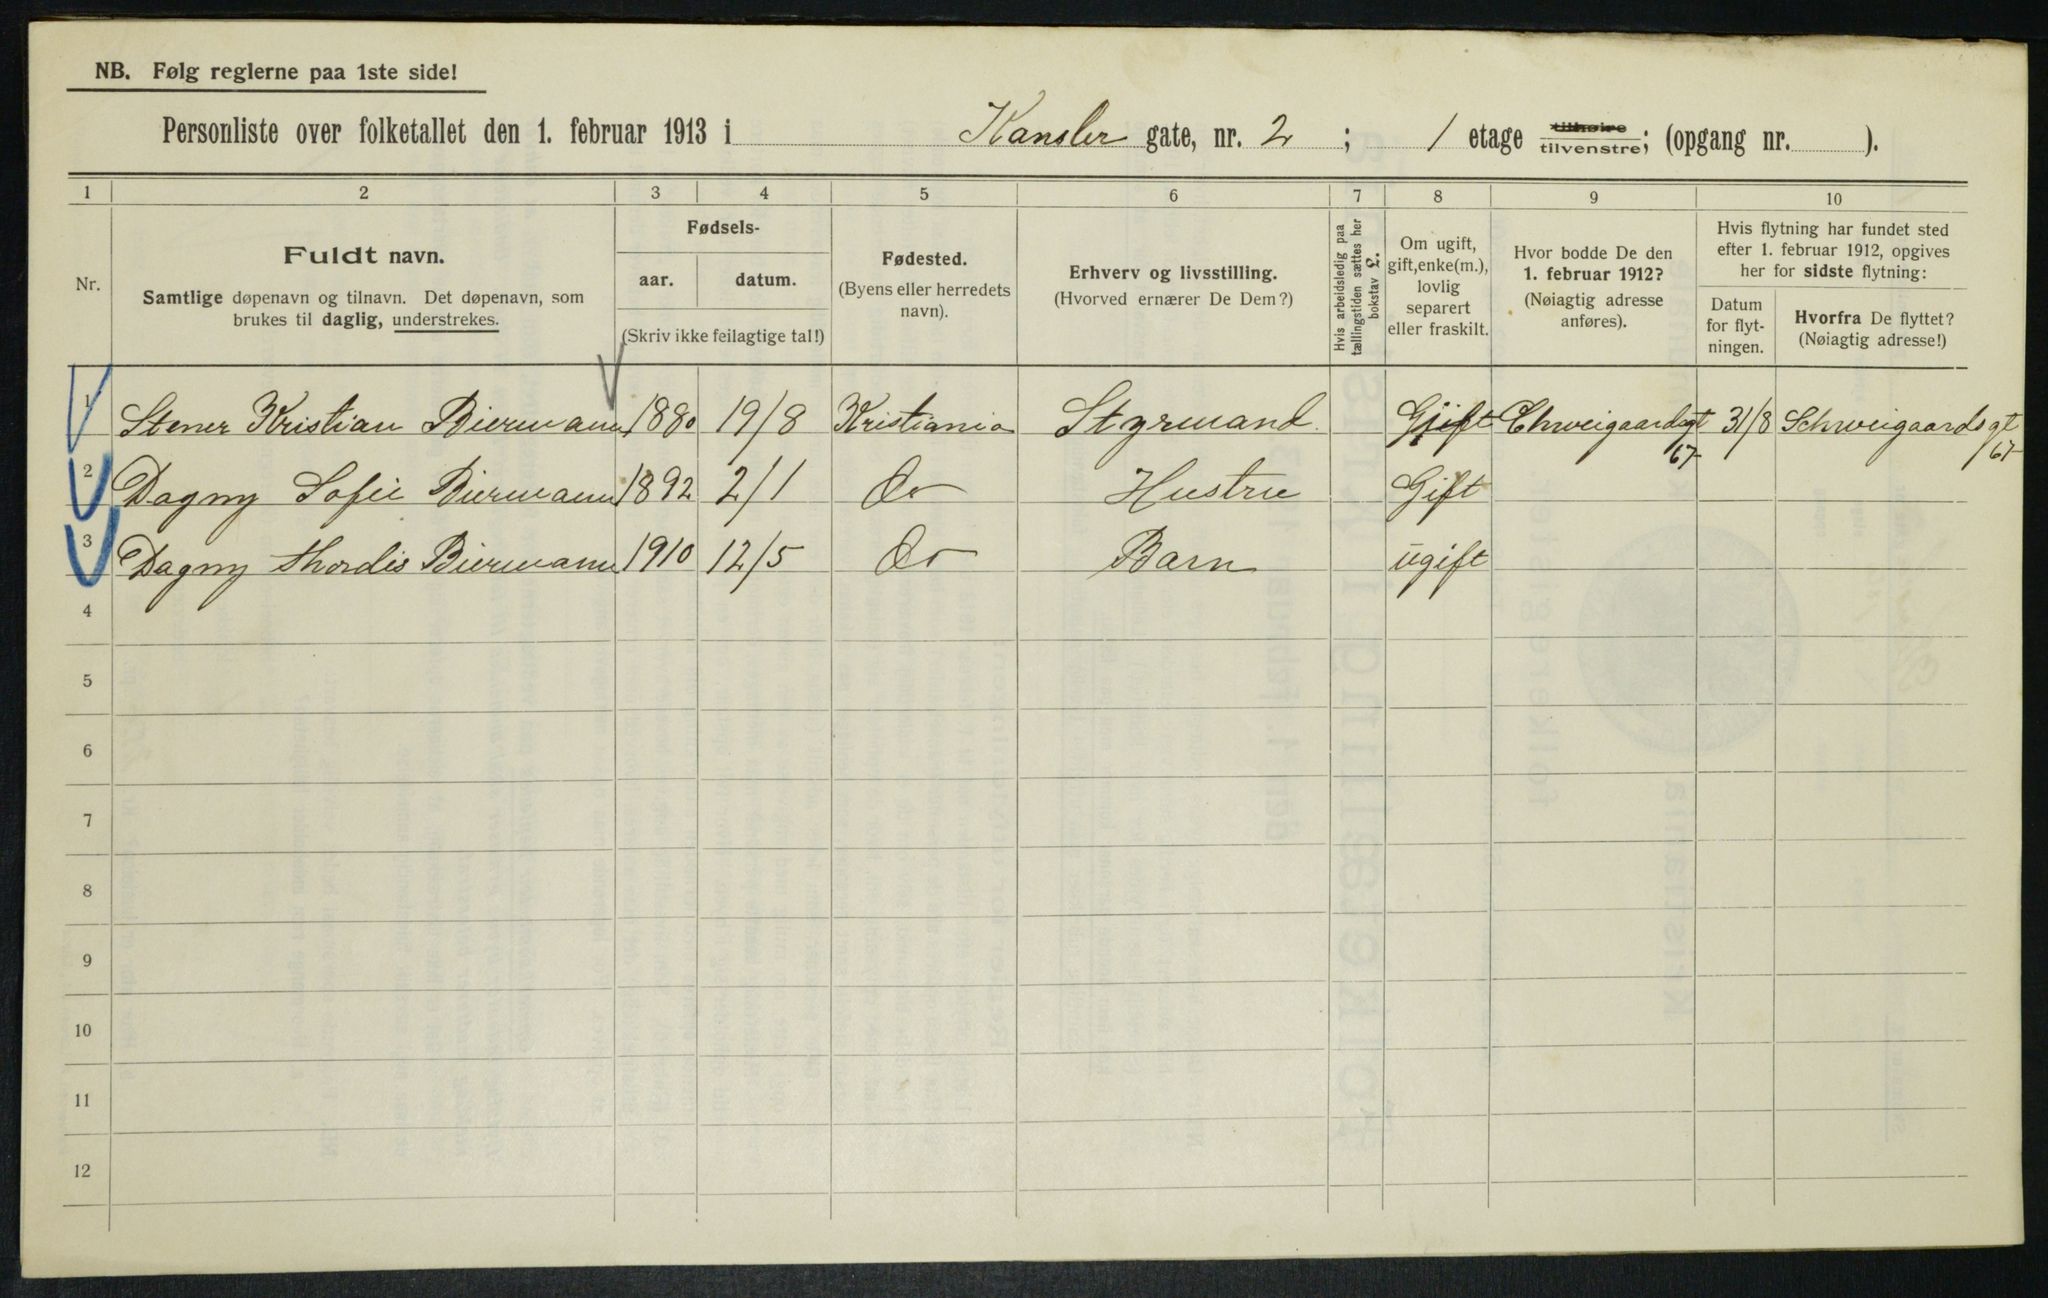 NB. Følg reglerne paa 1ste side!
Personliste over folketallet den 1. februar 1913 i Kansler gate, nr. 2 ; 1 etage tilhøire tilvenstre; (opgang nr. ).
1 2 3 4 5 6 7 8 9 10
Nr.
Fuldt navn.
Samtlige døpenavn og tilnavn. Det døpenavn, som
brukes til daglig, understrekes.
Fødsels-
aar. datum.
(Skriv ikke feilagtige tal!)
Fødested.
(Byens eller herredets
navn).
Erhverv og livsstilling.
(Hvorved ernærer De Dem?)
Hvis arbeidsledig paa
tællingstiden sættes her
bokstav L.
Om ugift,
gift, enke(m.),
lovlig
separert
eller fraskilt.
Hvor bodde De den
1. februar 1912?
(Nøiagtig adresse
anføres).
Hvis flytning har fundet sted
efter 1. februar 1912, opgives
her for sidste flytning:
Datum
for flyt-
ningen.
Hvorfra De flyttet?
(Nøiagtig adresse!)
1 Stener Kristian Biermann 1880 19/8 Kristiania Styrmand. Gift Chweigaardsgt 67 31/8 Schweigaards gt 67
2 Dagny Sofie Biermann 1892 2/1 Do Hustru Gift
3 Dagny Thordis Biermann 1910 12/5 Do Barn ugift
4
5
6
7
8
9
10
11
12